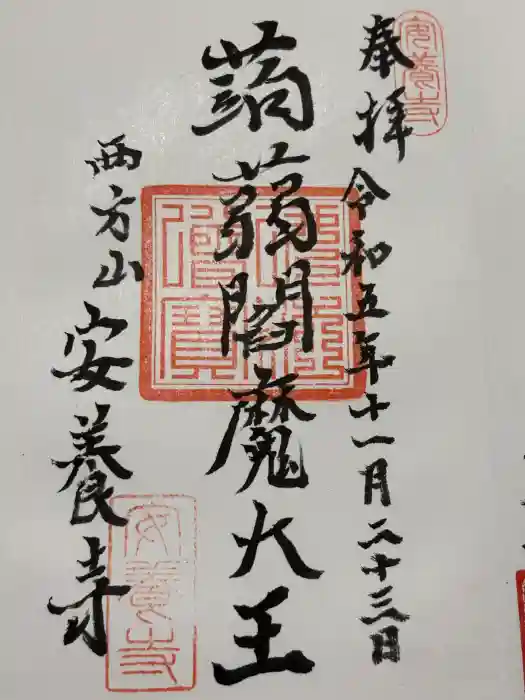 安養寺
奉拝 令和五年十一月二十三日
蒟蒻閻魔大王
佛法僧寶
西方山 安養寺
安養寺